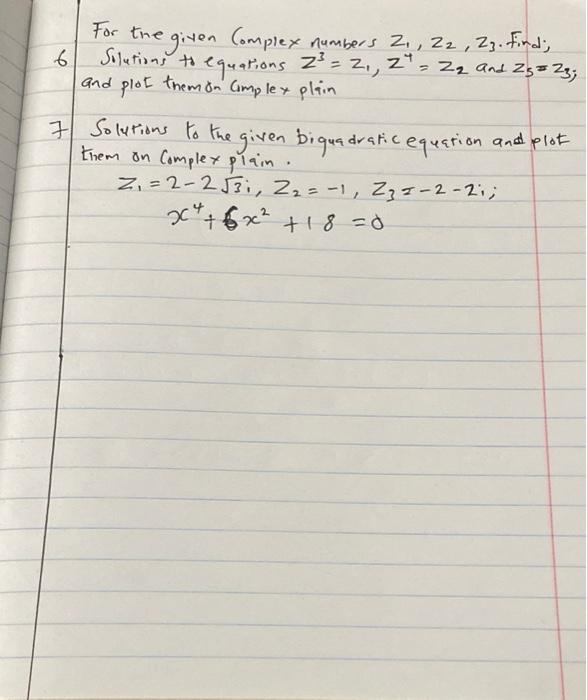 For the given Complex numbers Z₁, Z₂, Z₃. Find;
6 Solutions to equations Z³ = Z₁, Z⁴ = Z₂ and Z₅ = Z₃;
and plot them on Complex plain
7 Solutions to the given biquadratic equation and plot
them on Complex plain.
Z₁ = 2 - 2√3i, Z₂ = -1, Z₃ = -2 - 2i;
x⁴ + 6x² + 18 = 0